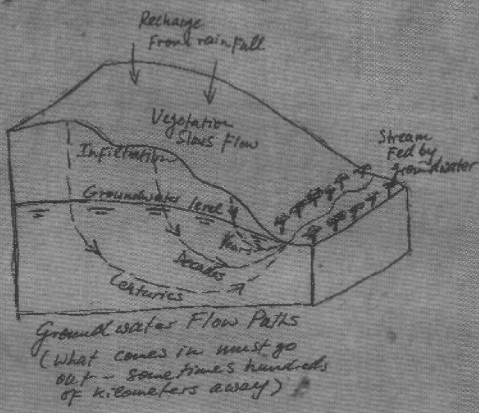 Recharge
From rainfall
Vegetation
Slows Flow
Stream
Fed by
groundwater
Infiltration
Groundwater level
Years
Decades
Centuries
Groundwater Flow Paths
(What comes in must go
out - sometimes hundreds
of kilometers away)